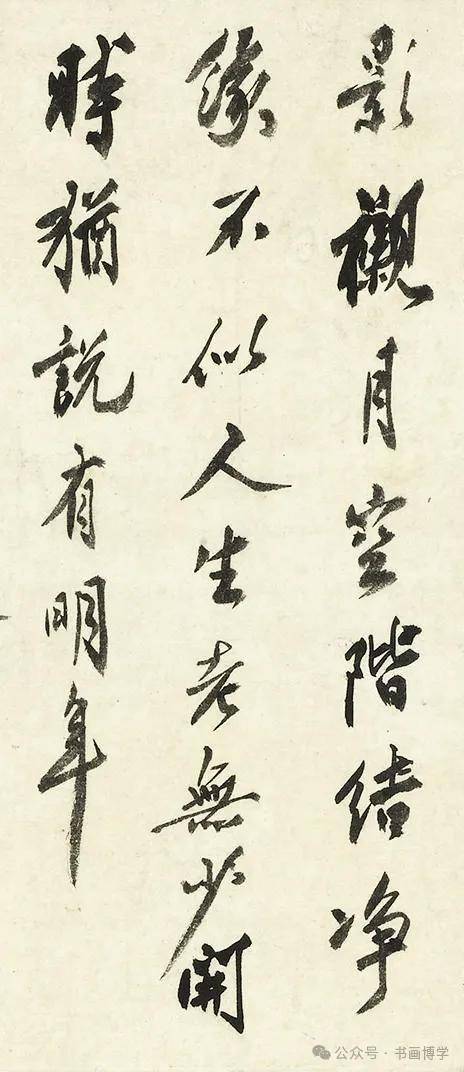 影觀月空階結净
緣不似人生老無少開
時猶説有明年
公众号 · 书画博学